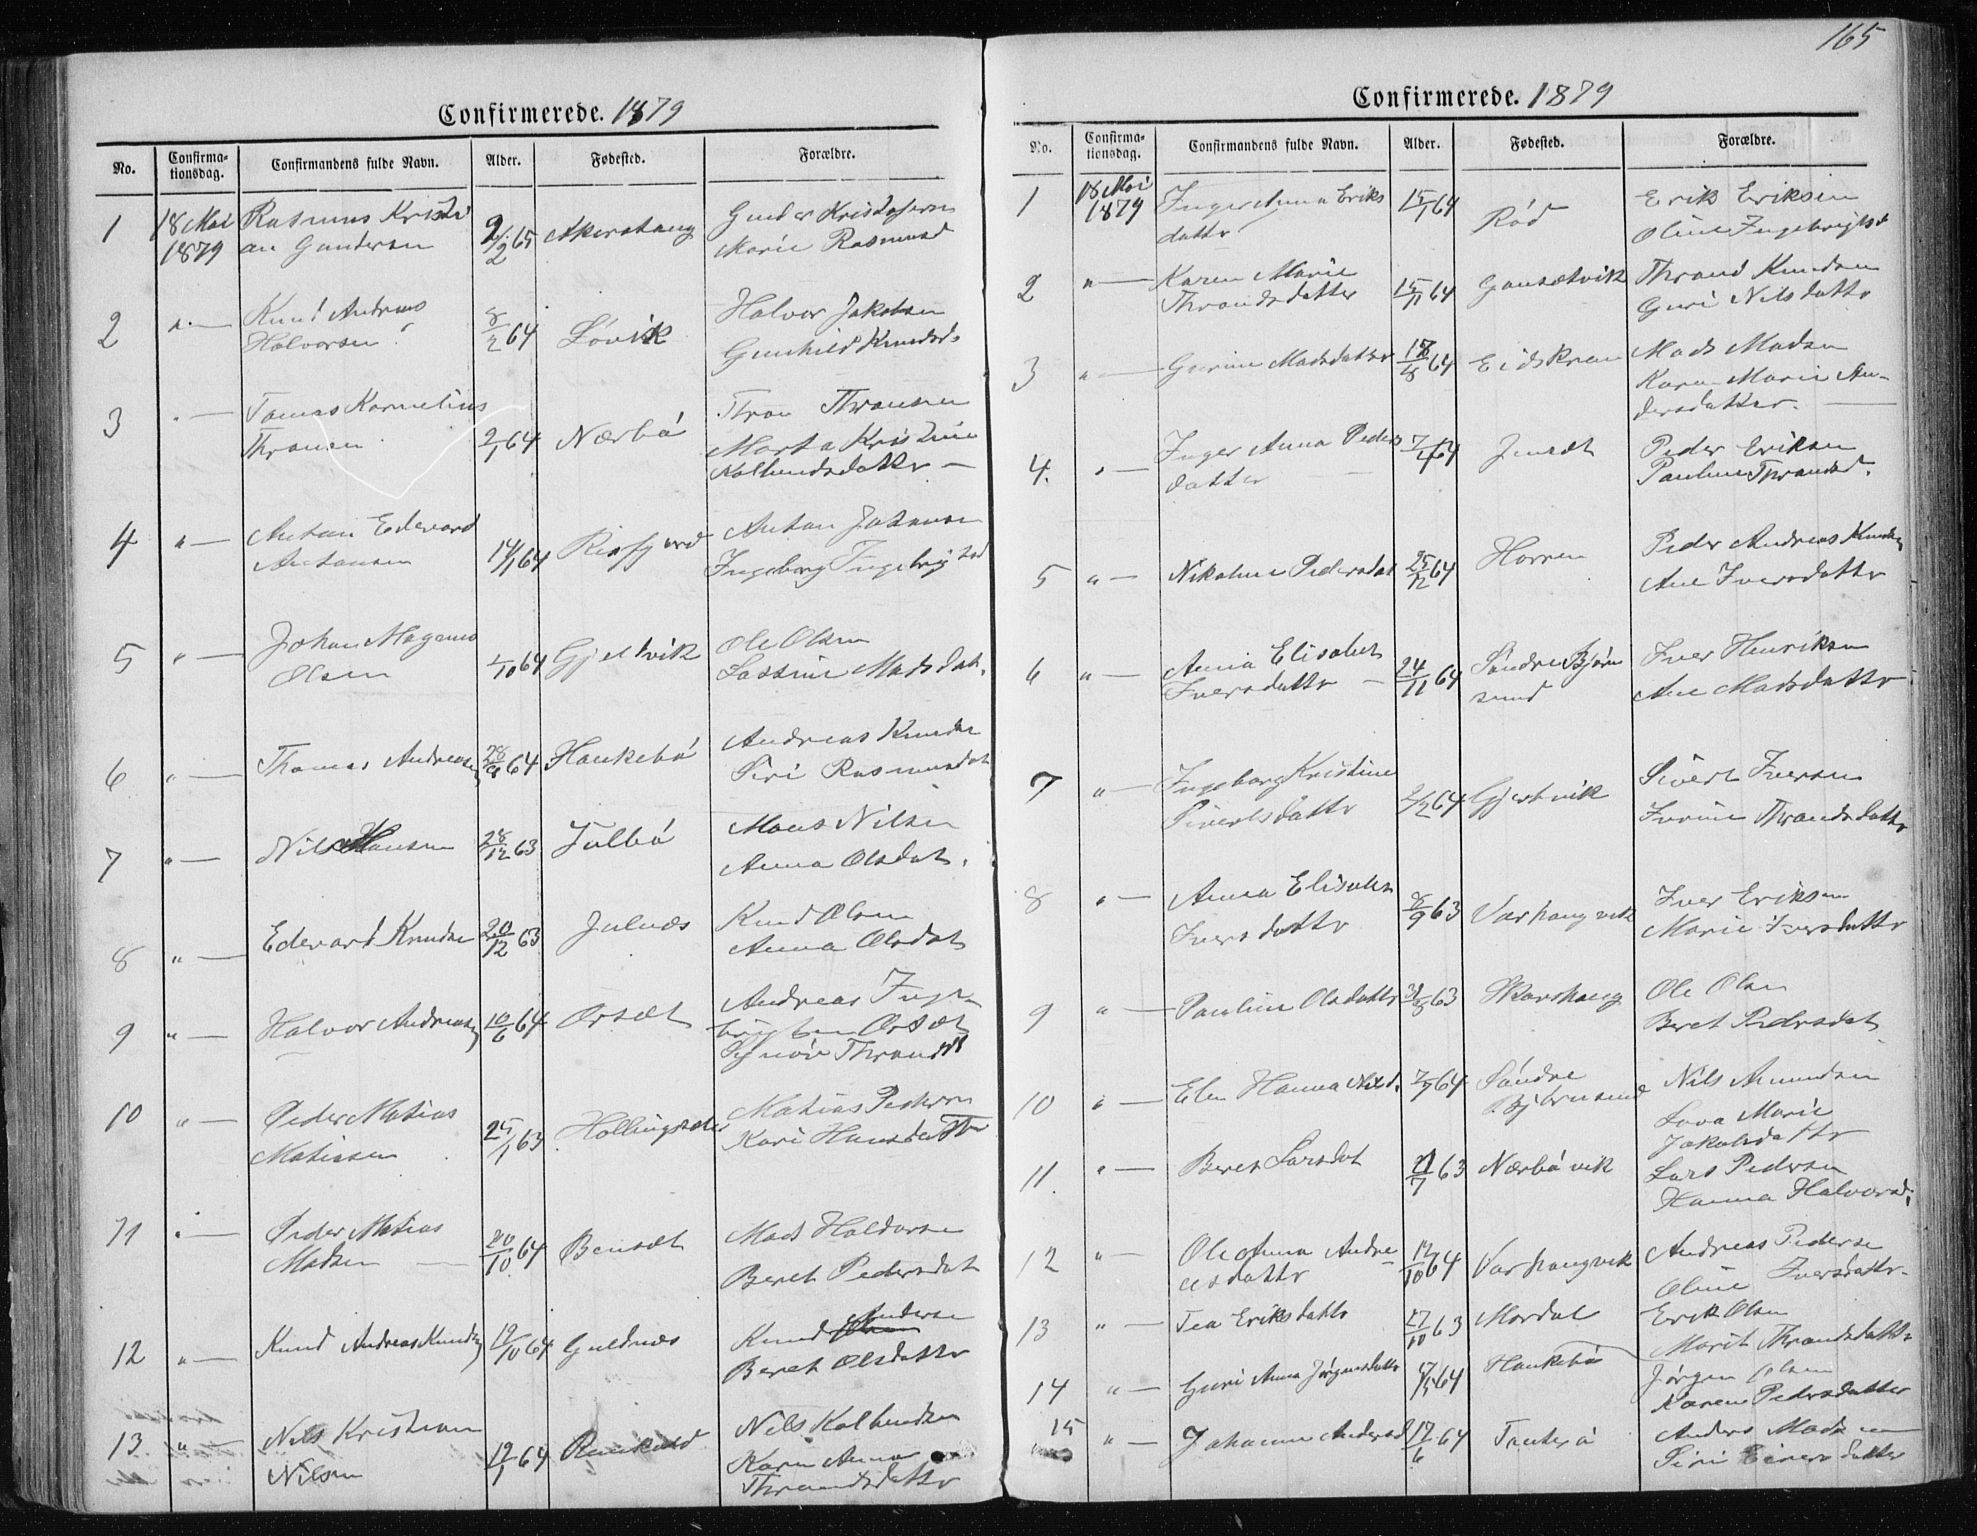 165
Confirmerede. 1879
No. Confirmationsdag. Confirmandens fulde Navn. Alder. Fødested. Forældre.
1 18 Mai 1879 Rasmus Kristian Gundersen 2/2 65 Akershaug Gunder Kristofersen
Marie Rasmusd
2 " — Knud Andreas Halvorsen 8/2 64 Løvik Halvor Jakobsen
Gunhild Knudsd.
3 " — Tomas Kornelius Thronsen 2/1 64 Nærbø Thron Thronsen
Marta Kristine
Kolbendsdatter —
4 " — Anton Edevard Antonsen 14/1 64 Anton Johansen
Ingeborg Ingebrigtsd
5 " — Johan Magnus Olsen 1/10 64 Gjeltvik Ole Olsen
Madsdat.
6 " — Thomas Andreasen 28/9 64 Haukebø Andreas Knudsen
Siri Rasmusdat
7 " — Nils Monsen 28/12 63 Julbø Mons Nilsen
Anna Olsdat.
8 " — Edevard Knudsen 20/12 63 Julnæs Knud Olsen
Anna Olsdat
9 " — Halvor Andreasen 10/6 64 Orsæt Andreas Inge-
brigtsen Orsæt
Synøve Thrandsd
10 " — Peder Matias Matiassen 25/1 63 Matias Pedersen
Kari Hansdatter
11 " — Peder Matias Madsen — 20/10 64 Bensæt Mads Haldorsen
Beret Pedersdat
12 " — Knud Andreas Knudsen 12/10 64 Guldnæs Knud Andersen
Beret Olsdatter
13 " — Nils Kristian Nilsen 12/1 64 Nils Kolbendsen
Karen Anna
Thrandsdatter
Confirmerede. 1879
No. Confirmationsdag. Confirmandens fulde Navn. Alder. Fødested. Forældre.
1 18 Mai 1879 Inger Anna Eriksdatter 15/1 64 Rød Erik Eriksen
Oline Ingebrigtsd
2 " — Karen Marie Thrandsdatter 15/11 64 Gousetvik Thrand Knudsen
Guri Nilsdatter
3 " — Gurine Madsdatter 18/8 64 Mads Madsen
Karen Marie An-
dersdatter. —
4. " — Inger Anna Pedersdatter 7/4 64 Jensæt Peder Eriksen
Pauline Thrandsd.
5 " — Nikoline Pedersdat 25/12 64 Horren Peder Andreas Knudsen
Ane Iversdatter
6 " — Anna Elisabet Iversdatter — 24/11 64 Søndre Bjørnsund Iver Henriksen
Ane Madsdatter
7 " — Ingeborg Kristine Sivertsdatter 2/2 64 Gjertvik Sivert Iversen
Thrandsdatter
8 " — Anna Elisabet Iversdatter 8/9 63 Varhaugvik Iver Eriksen
Marie Iversdatter
9 " — Pauline Olsdatter 31/8 63 Skarshaug Ole Olsen
Beret Pedersdat
10 " — Elen Hanna Nilsd. 7/9 64 Søndre Bjørnsund Nils Amundsen
Marie
Jakobsdatter
11 " — Beret Larsdat 21/7 63 Nærbøvik Lars Pedersen
Hanna Halvorsd.
12 " — Oleanna Andreasdatter 12/10 64 Varhaugvik Andreas Pedersen
Oline Iversdatter
13 " — Tea Eriksdatter 27/10 63 Mordal Erik Olsen
Marit Thrandsdatter
14 " — Guri Anna Jørgensdatter 17/5 64 Haukebø Jørgen Olsen
Karen Pedersdatter
15 " — Johanna Andersd 12/6 64 Tanterø Anders Madsen
Siri Einersdatter